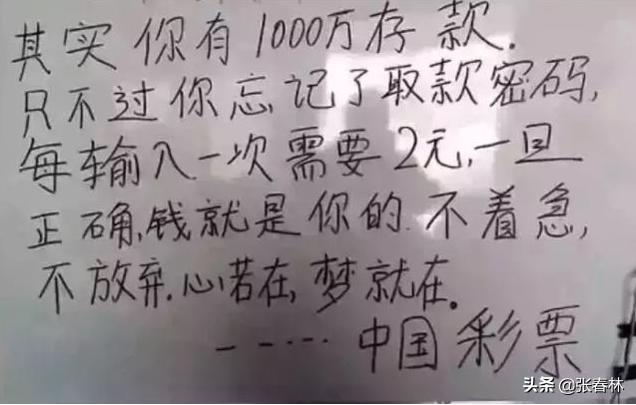 其实你有1000万存款.
只不过你忘记了取款密码,
每输入一次需要2元,一旦
正确,钱就是你的.不着急,
不放弃.心若在,梦就在。
-----中国彩票
头条 @张春林